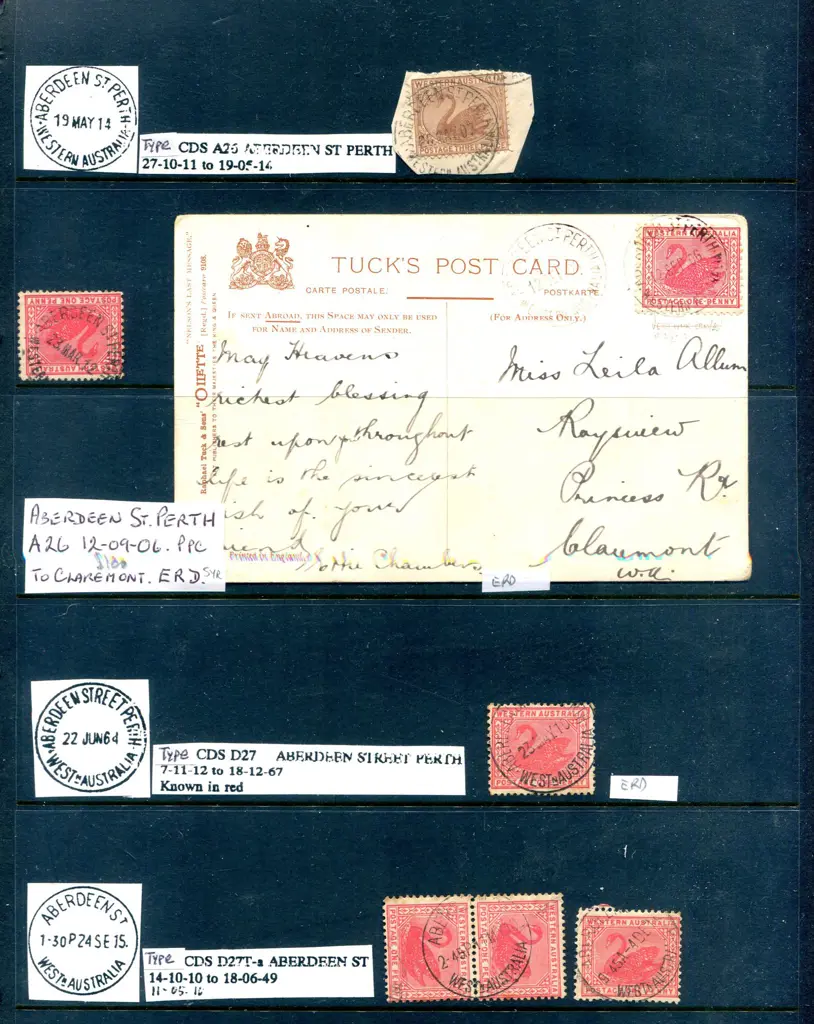 ABERDEEN ST. PERTH
19 MAY 14
WESTERN AUSTRALIA
Type CDS A26 ABERDEEN ST PERTH
27-10-11 to 19-05-14
WESTERN AUSTRALIA
ABERDEEN ST. PERTH
WESTERN AUSTRALIA
POSTAGE THREE
POSTAGE ONE PENNY
ABERDEEN ST
23 MAR 12
"NELSON'S LAST MESSAGE."
Raphael Tuck & Sons' "OILETTE" [Regd.] Postcard 9108.
TUCK'S POST CARD.
CARTE POSTALE.
POSTKARTE.
IF SENT ABROAD, THIS SPACE MAY ONLY BE USED
FOR NAME AND ADDRESS OF SENDER.
(FOR ADDRESS ONLY.)
WESTERN AUSTRALIA
POSTAGE ONE PENNY
May Heavens
richest blessing
rest upon & throughout
life is the sincerest
wish of your
friend
Chambers
Miss Leila Allum
Raysview
Princess Rd
Claremont
W.A.
ABERDEEN ST. PERTH
A26 12-09-06. PPC
TO CLAREMONT. ERD. 5YR
ERD
ABERDEEN STREET PERTH
22 JUN 64
WEST AUSTRALIA
Type CDS D27 ABERDEEN STREET PERTH
7-11-12 to 18-12-67
Known in red
WESTERN AUSTRALIA
WEST AUSTRALIA
ERD
ABERDEEN ST
1-30P 24 SE 15.
WEST AUSTRALIA
Type CDS D27T-a ABERDEEN ST
14-10-10 to 18-06-49
11-05-10
WEST AUSTRALIA
WEST AUSTRALIA